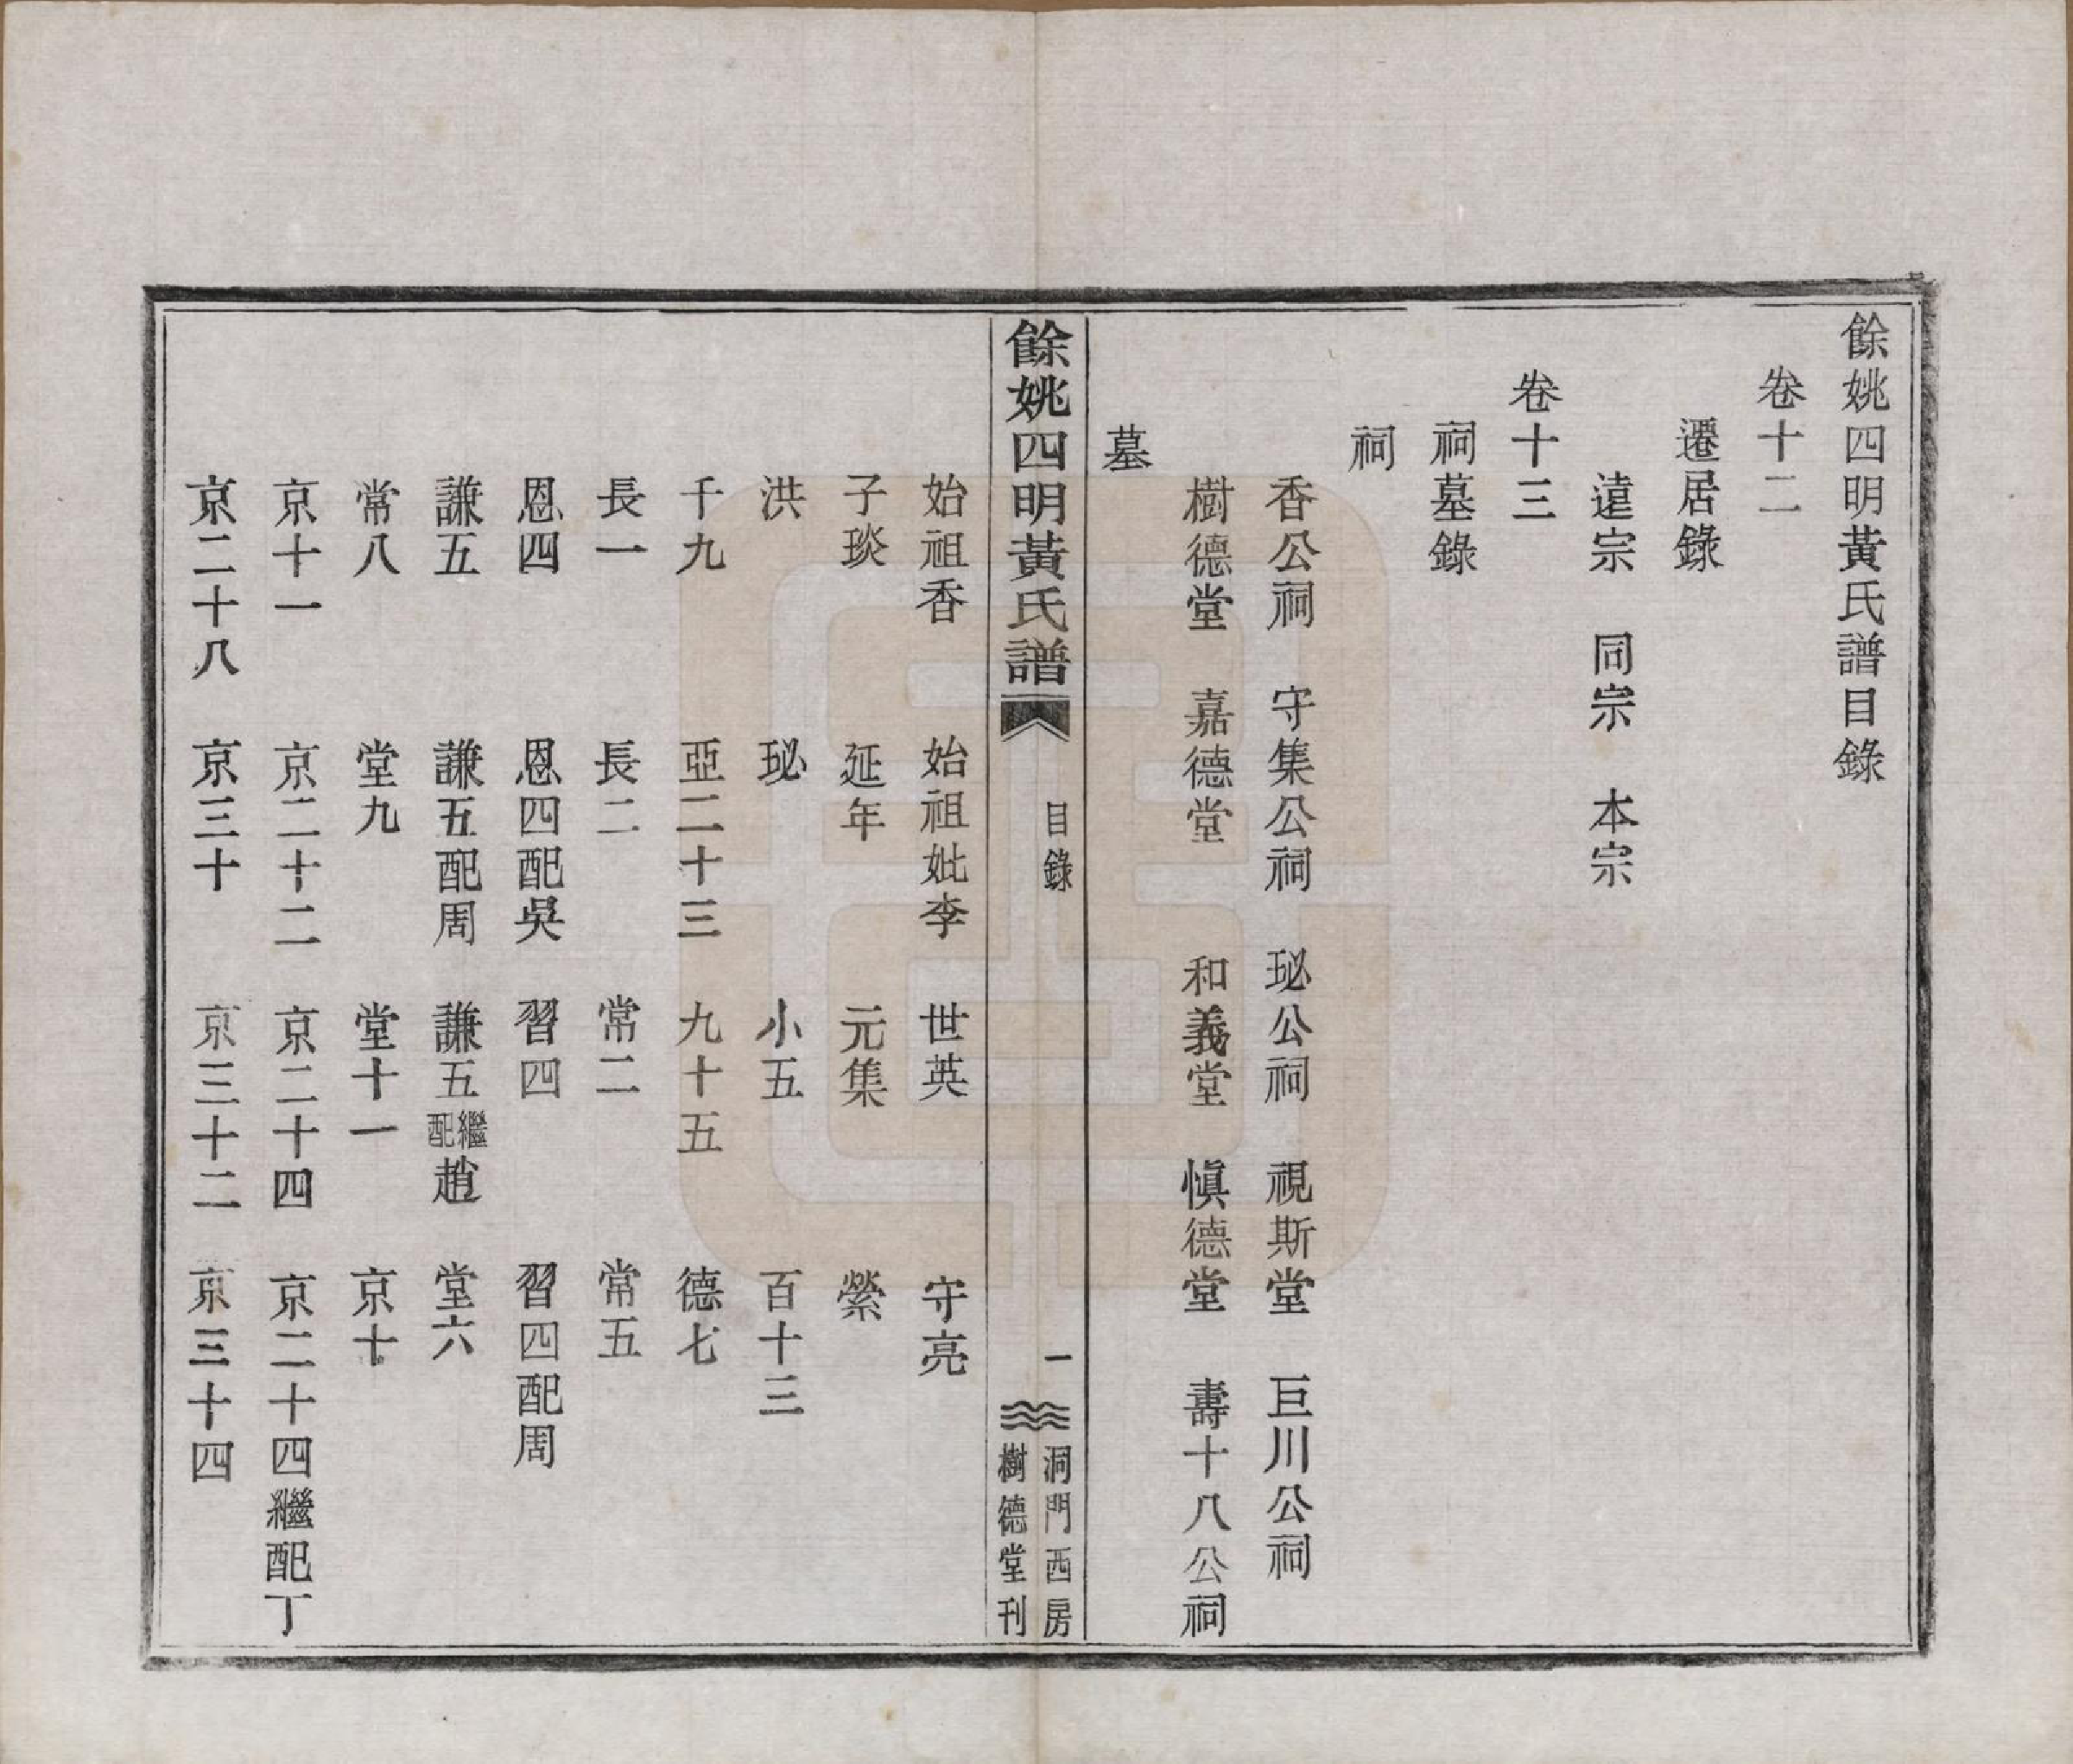 餘姚四明黃氏譜目錄
卷十二
遷居錄
遠宗 同宗 本宗
卷十三
祠墓錄
祠
香公祠 守集公祠 珌公祠 視斯堂 巨川公祠
樹德堂 嘉德堂 和義堂 愼德堂 壽十八公祠
墓
餘姚四明黃氏譜 目錄 一 洞門西房 樹德堂刊
始祖香 始祖妣李 世英 守亮
子琰 延年 元集 縈
洪 珌 小五 百十三
千九 亞二十三 九十五 德七
長一 長二 常二 常五
恩四 恩四配吳 習四 習四配周
謙五 謙五配周 謙五繼配趙 堂六
常八 堂九 堂十一 京十
京十一 京二十二 京二十四 京二十四繼配丁
京二十八 京三十 京三十二 京三十四